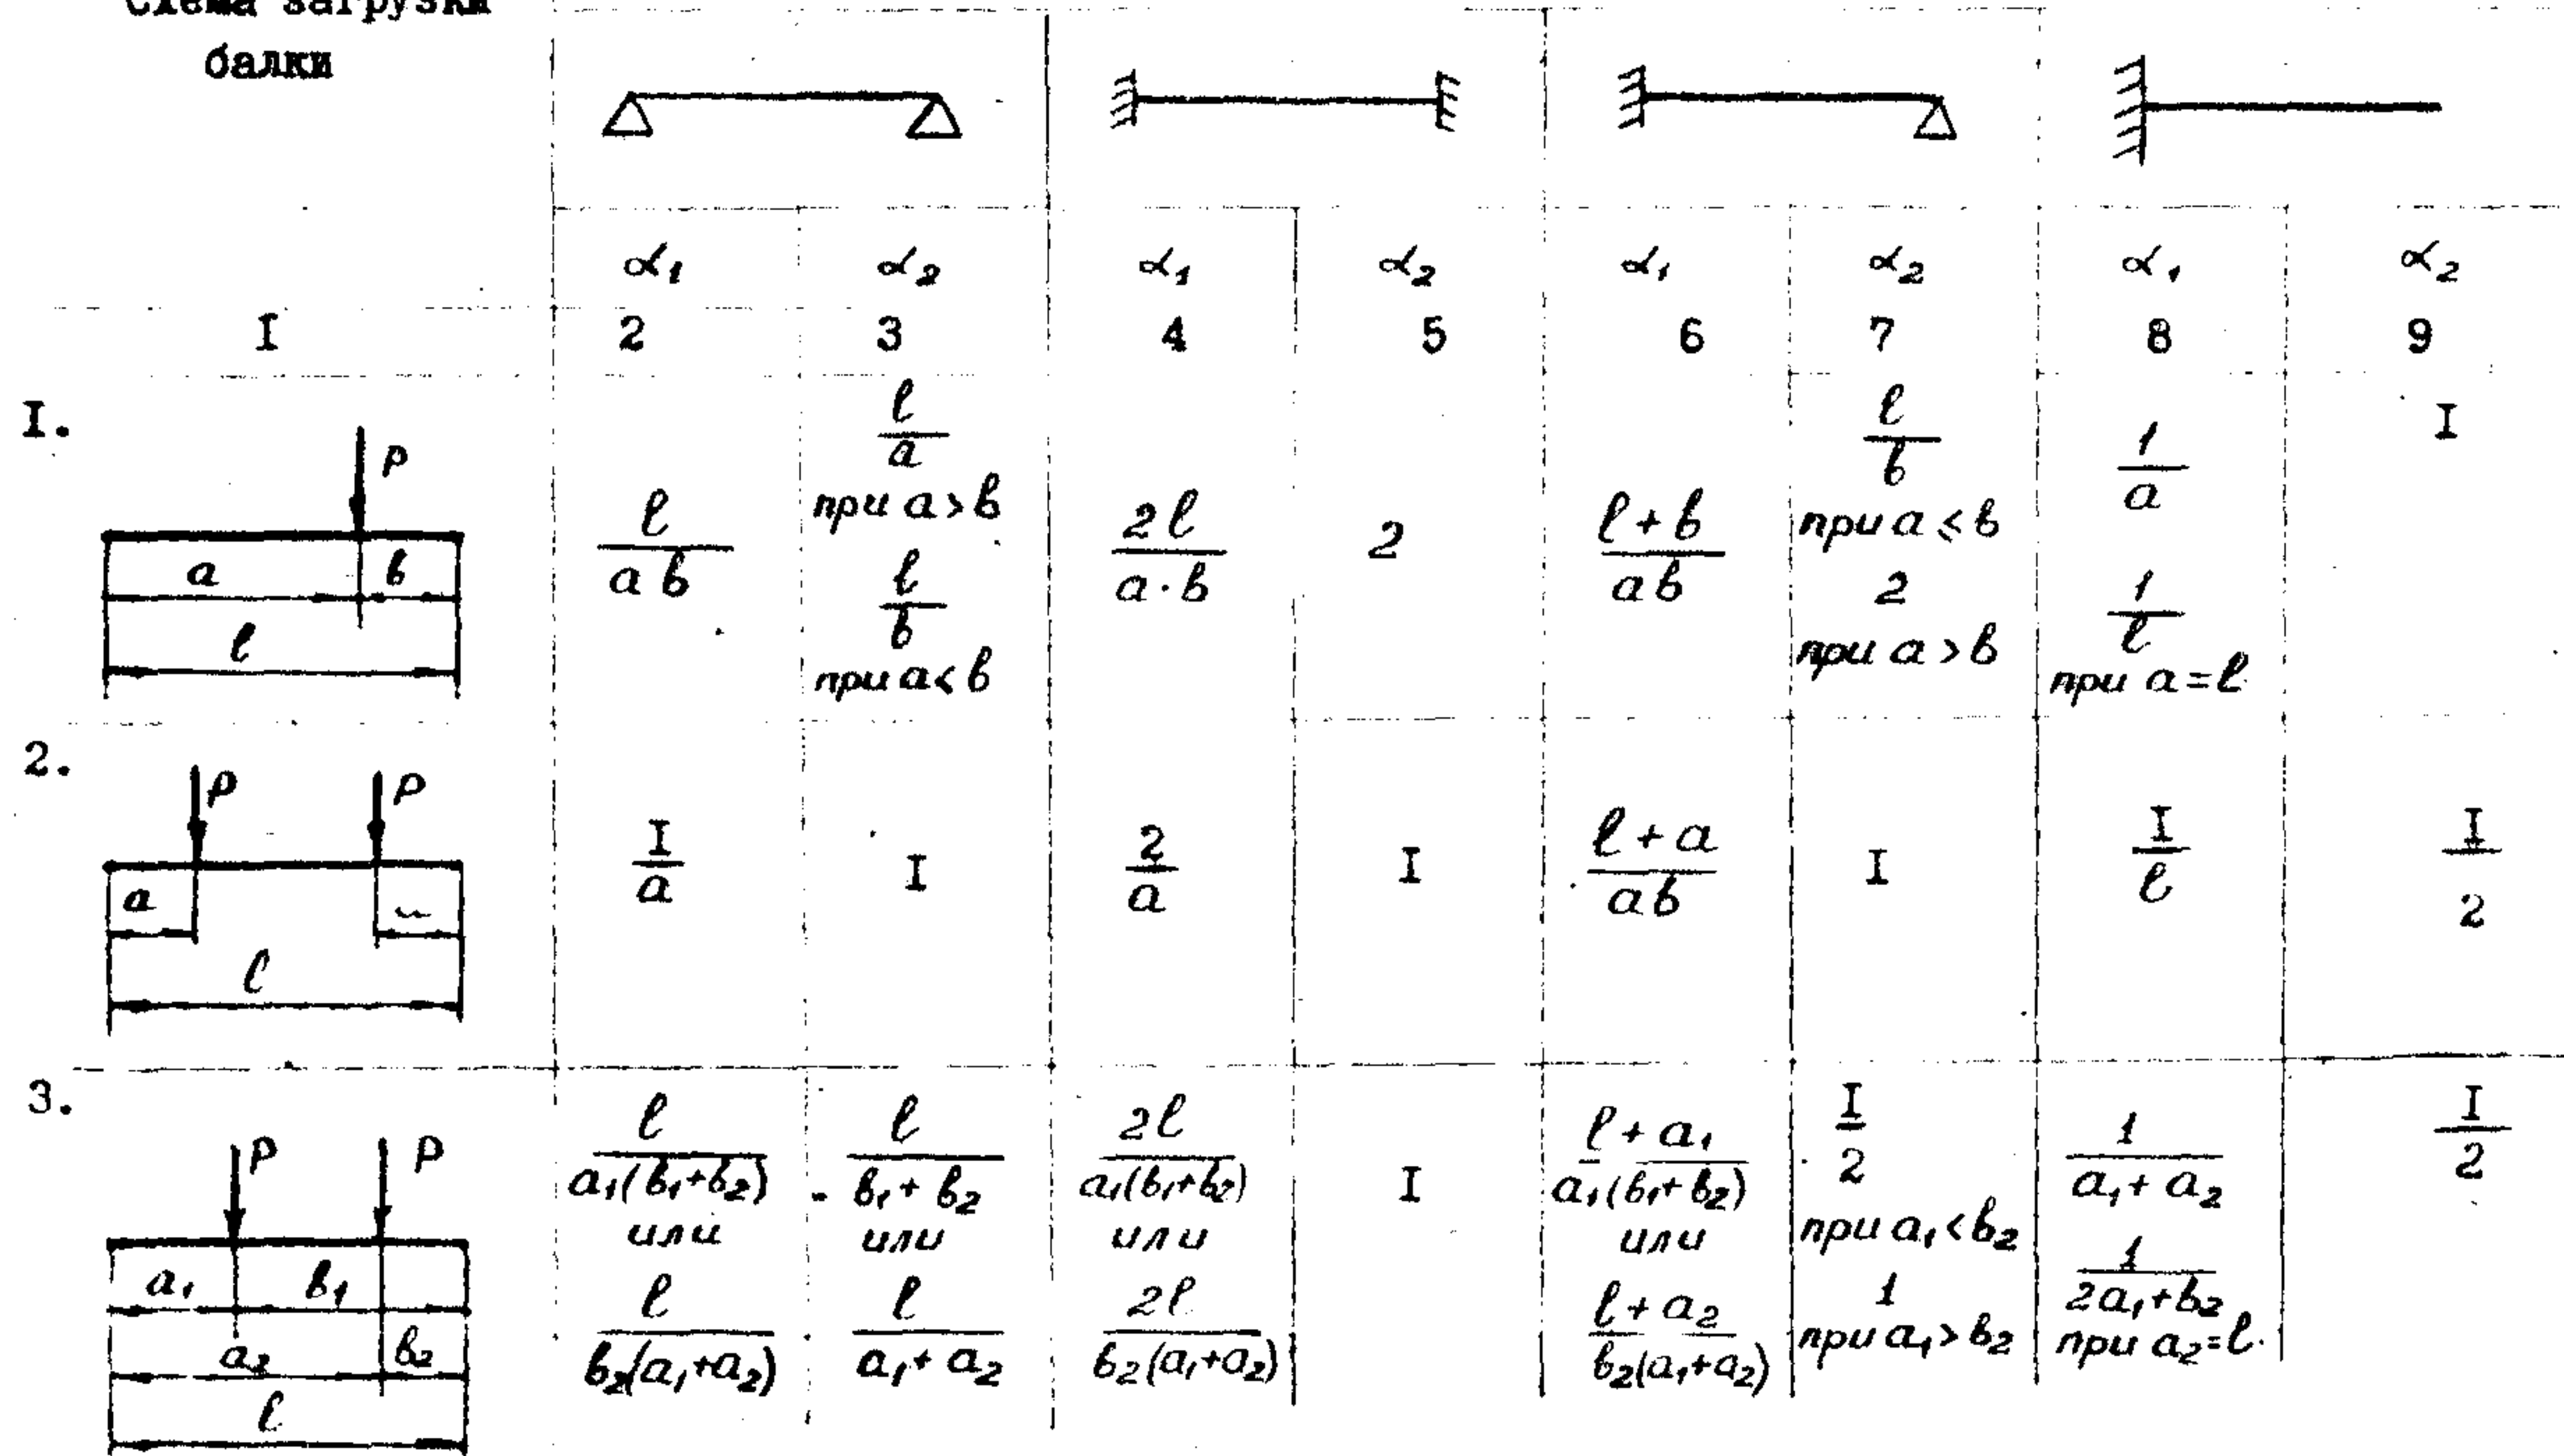 Схема загрузки
балки
α₁ α₂ α₁ α₂ α₁ α₂ α₁ α₂
I 2 3 4 5 6 7 8 9
I.
P
a в
ℓ
ℓ/aв
ℓ/a
при a>в
ℓ/в
при a<в
2ℓ/a·в
2
ℓ+в/aв
ℓ/в
при a≤в
2
при a>в
1/a
1/ℓ
при a=ℓ
I
2.
P P
a
ℓ
I/a
I
2/a
I
ℓ+a/aв
I
I/ℓ
I/2
3.
P P
a₁ в₁
a₂ в₂
ℓ
ℓ/a₁(в₁+в₂)
или
ℓ/в₂(a₁+a₂)
ℓ/в₁+в₂
или
ℓ/a₁+a₂
2ℓ/a₁(в₁+в₂)
или
2ℓ/в₂(a₁+a₂)
I
ℓ+a₁/a₁(в₁+в₂)
или
ℓ+a₂/в₂(a₁+a₂)
I/2
при a₁<в₂
1
при a₁>в₂
1/a₁+a₂
1/2a₁+в₂
при a₂=ℓ.
I/2